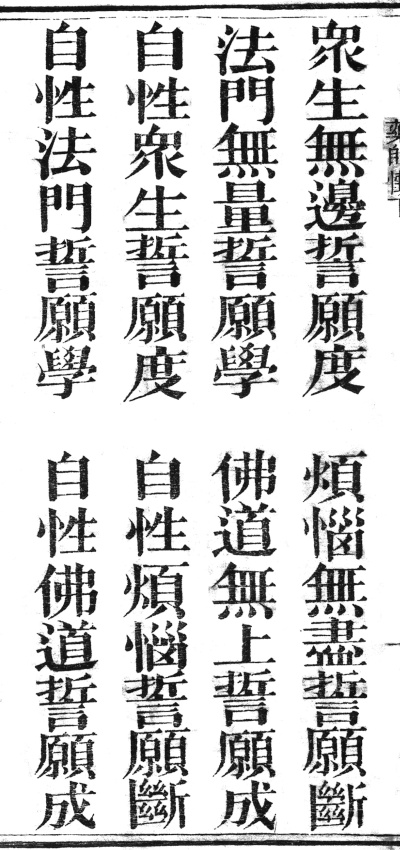 衆生無邊誓願度　煩惱無盡誓願斷
法門無量誓願學　佛道無上誓願成
自性衆生誓願度　自性煩惱誓願斷
自性法門誓願學　自性佛道誓願成